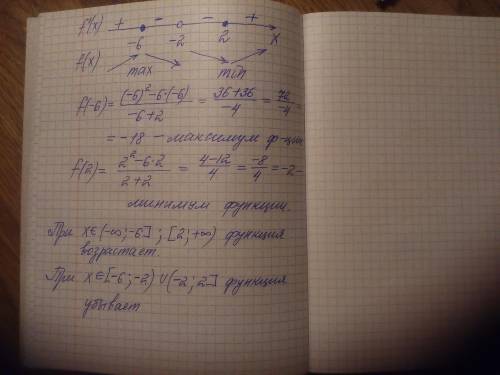 f'(x) + - - +
-6 -2 2 x
f(x) max min
f(-6) = \frac{(-6)^2-6·(-6)}{-6+2} = \frac{36+36}{-4} = \frac{72}{-4} =
= -18 - максимум ф-ции
f(2) = \frac{2^2-6·2}{2+2} = \frac{4-12}{4} = \frac{-8}{4} = -2 -
минимум функции.
При x∈(-∞; -6] ; [2; +∞) функция
возрастает.
При x∈[-6; -2) ∪ (-2; 2] функция
убывает